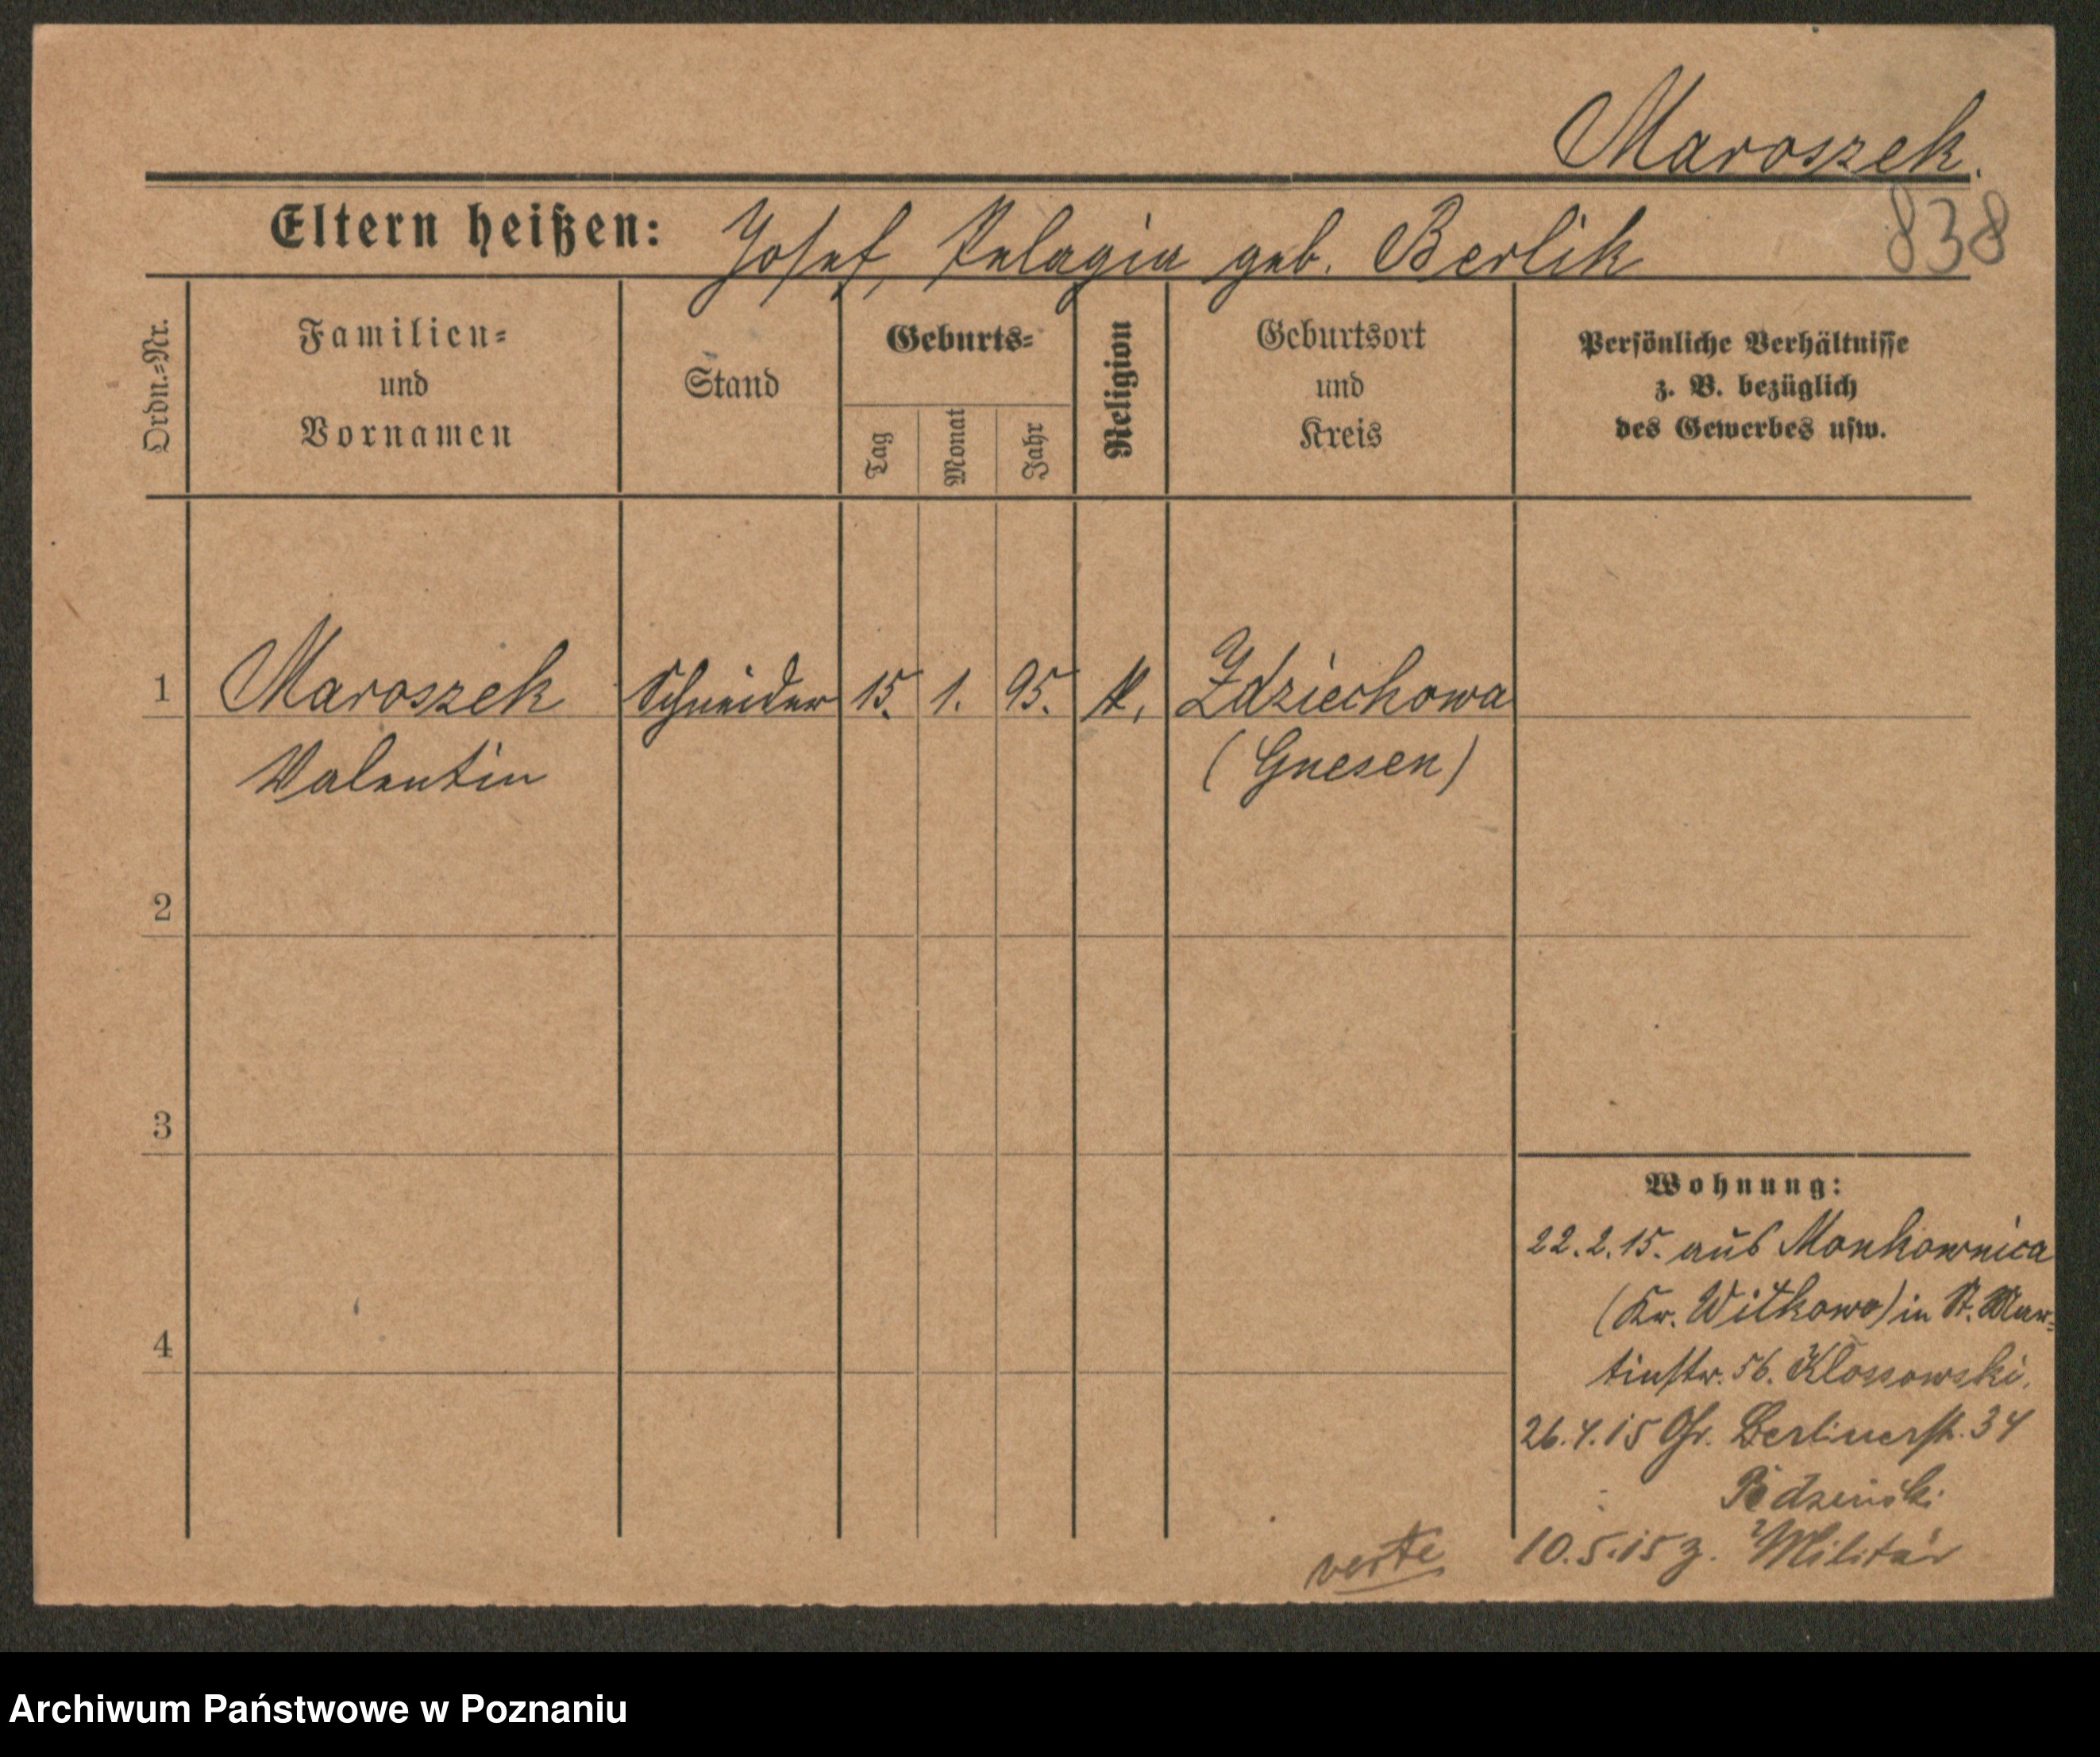 Maroszek.
838
Eltern heißen: Josef, Pelagia geb. Berlik
Ordn.=Nr.
Familien=
und
Vornamen
Stand
Geburts=
Tag
Monat
Jahr
Religion
Geburtsort
und
Kreis
Persönliche Verhältnisse
z. B. bezüglich
des Gewerbes usw.
1 Maroszek Schneider 15. 1. 95. k. Zdziechowa
Valentin (Gnesen)
2
3
4
Wohnung:
22.2.15. aus Monkownica
(Kr. Witkowo) in St. Mar=
tinstr. 56. Klossowski.
26.4.15 Gr. Berlinerstr. 34
10.5.15 z. Militär
verte
Archiwum Państwowe w Poznaniu